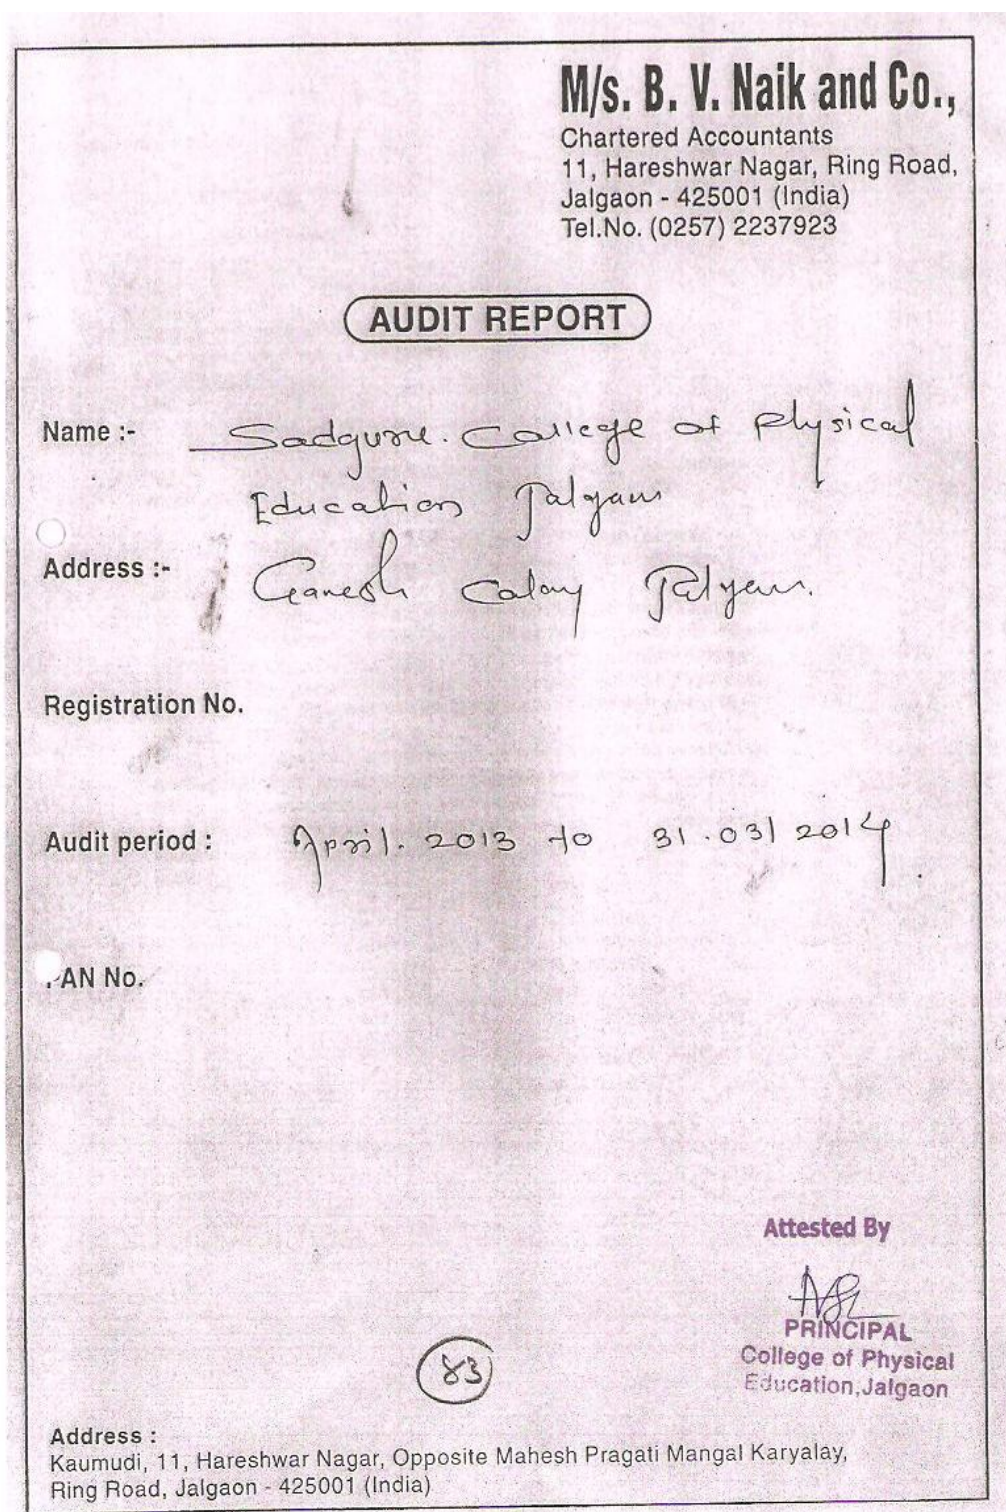 M/s. B. V. Naik and Co.,
Chartered Accountants
11, Hareshwar Nagar, Ring Road,
Jalgaon - 425001 (India)
Tel.No. (0257) 2237923
AUDIT REPORT
Name :- Sadguru. College of Physical
Education Jalgaon
Address :- Ganesh Colony Jalgaon.
Registration No.
Audit period : April. 2013 to 31.03/2014
PAN No.
Attested By
PRINCIPAL
College of Physical
Education,Jalgaon
83
Address :
Kaumudi, 11, Hareshwar Nagar, Opposite Mahesh Pragati Mangal Karyalay,
Ring Road, Jalgaon - 425001 (India)